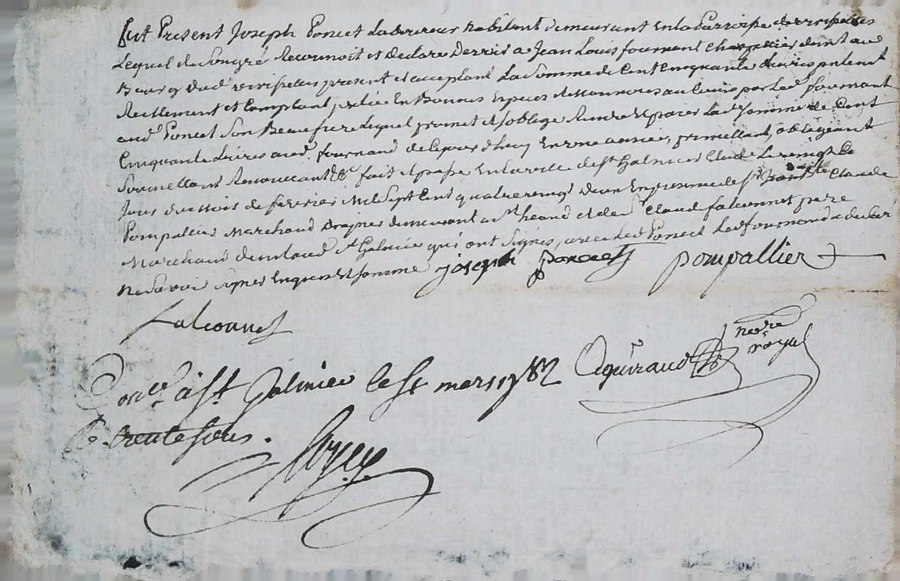 fut Present Joseph Poncet Laboureur habitant demeurant En la Parroisse de
Lequel de son gré Reconnoit et Declare Devoir a Jean Louis fournant Charpentier dem.t au
Bourg dud. present et acceptant La somme de Cent Cinquante Livres
Reellement et Comptant En Bonnes Especes de Monnoies au Cours par led. fournant
aud. Poncet Son Beaufrere Lequel promet et s'oblige Rendre et payer Lad. somme de Cent
Cinquante Livres aud. fournand de Ce jour d'huy En une année, promettant, obligeant
Soumettant Renonceant &c. fait et passé En la ville de St Galmier Etude Le
Jour du Mois de fevrier Mil Sept Cent quatre vingt deux En presence de Sr
Pompallier Marchand demeurant a St heand et de Sr Claude falconnet pere
Marchand dem.t aud. St Galmier qui ont Signés, avec led. Poncet Led. fournand a declaré
ne Savoir Signer Enquis et sommé joseph poncet pompallier
falconnet
Con.lé a St Galmier le 5e mars 1782
R. trente sous.
not.re
royal